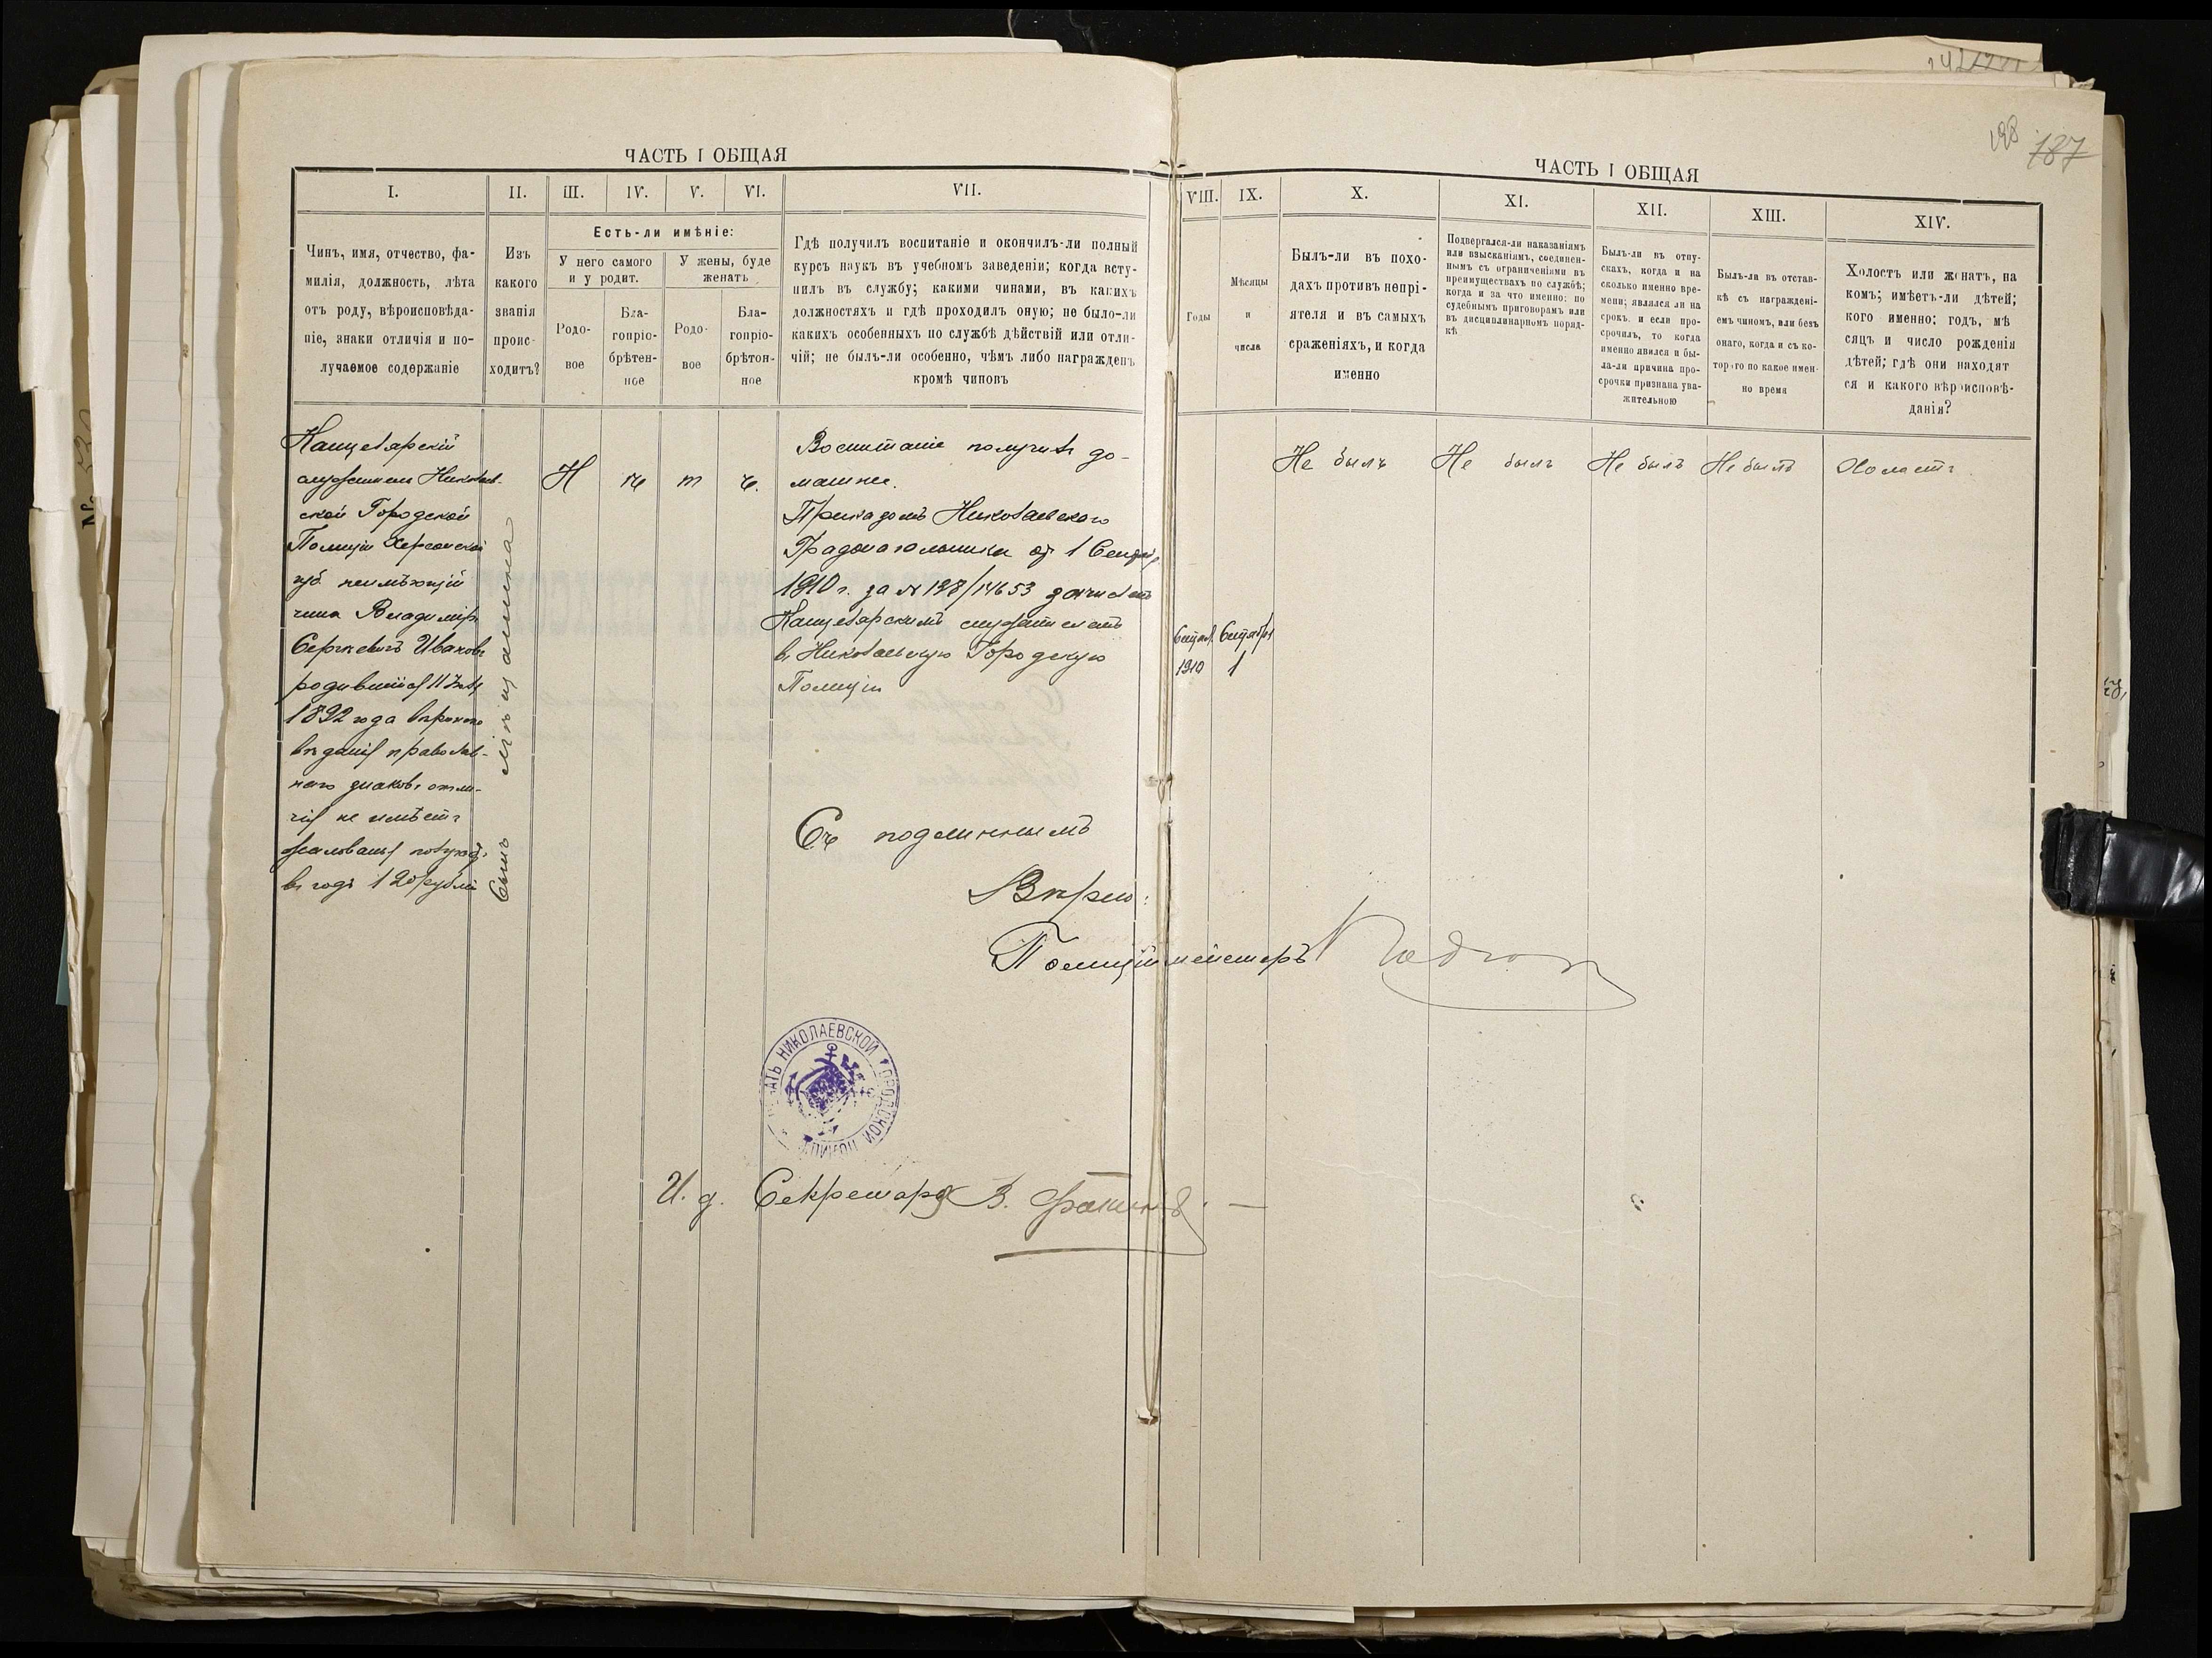 ЧАСТЬ I ОБЩАЯ
I.
II.
III.
IV.
V.
VI.
VII.
Чинъ, имя, отчество, фа-
милія, должность, лѣта
отъ роду, вѣроисповѣда-
ніе, знаки отличія и по-
лучаемое содержаніе
Изъ
какого
званія
проис-
ходитъ?
Есть-ли имѣніе:
У него самого
и у родит.
У жены, буде
женатъ
Родо-
вое
Бла-
гопріо-
брѣтен-
ное
Родо-
вое
Бла-
гопріо-
брѣтен-
ное
Гдѣ получилъ воспитаніе и окончилъ-ли полный
курсъ наукъ въ учебномъ заведеніи; когда всту-
пилъ въ службу; какими чинами, въ какихъ
должностяхъ и гдѣ проходилъ оную; не было-ли
какихъ особенныхъ по службѣ дѣйствій или отли-
чій; не былъ-ли особенно, чѣмъ либо награжденъ
кромѣ чиновъ
Канцелярскій
служитель Николаев-
ской Городской
Полиціи Херсонской
губ. неимѣющій
чина Владиміръ
Сергѣевичъ Ивановъ
родившійся 11
1892 года вѣроиспо
вѣданія православ-
наго знаковъ отли-
чія не имѣетъ
жалованья получ.
въ годъ 120 рублей
Сынъ мѣщанина
Н ѣ т ъ.
Воспитаніе получилъ до-
машнее.
Приказомъ Николаевскаго
Градоначальника отъ 1 Сентяб.
1910 г. за № 138/14653 зачисленъ
Канцелярскимъ служителемъ
въ Николаевскую Городскую
Полицію
Съ подлиннымъ
Вѣрно:
Полиціймейстеръ
ПЕЧАТЬ НИКОЛАЕВСКОЙ ГОРОДСКОЙ ПОЛИЦІИ
И. д. Секретаря В.
ЧАСТЬ I ОБЩАЯ
198
187
VIII.
IX.
X.
XI.
XII.
XIII.
XIV.
Годы
Мѣсяцы
и
числа
Былъ-ли въ похо-
дахъ противъ непрі-
ятеля и въ самыхъ
сраженіяхъ, и когда
именно
Подвергался-ли наказаніямъ
или взысканіямъ, соединен-
нымъ съ ограниченіями въ
преимуществахъ по службѣ;
когда и за что именно; по
судебнымъ приговорамъ или
въ дисциплинарномъ поряд-
кѣ
Былъ-ли въ отпу-
скахъ, когда и на
сколько именно вре-
мени; являлся ли на
срокъ и если про-
срочилъ, то когда
именно явился и бы-
ла-ли причина про-
срочки признана ува-
жительною
Былъ-ли въ отстав-
кѣ съ награжденi-
емъ чиномъ, или безъ
онаго, когда и съ ко-
тораго по какое имен-
но время
Холостъ или женатъ, на
комъ; имѣетъ-ли дѣтей;
кого именно; годъ, мѣ
сяцъ и число рожденія
дѣтей; гдѣ они находят
ся и какого вѣроисповѣ-
данія?
Сентяб. Сентября
1910 1
Не былъ
Не былъ
Не былъ
Не былъ
Холостъ